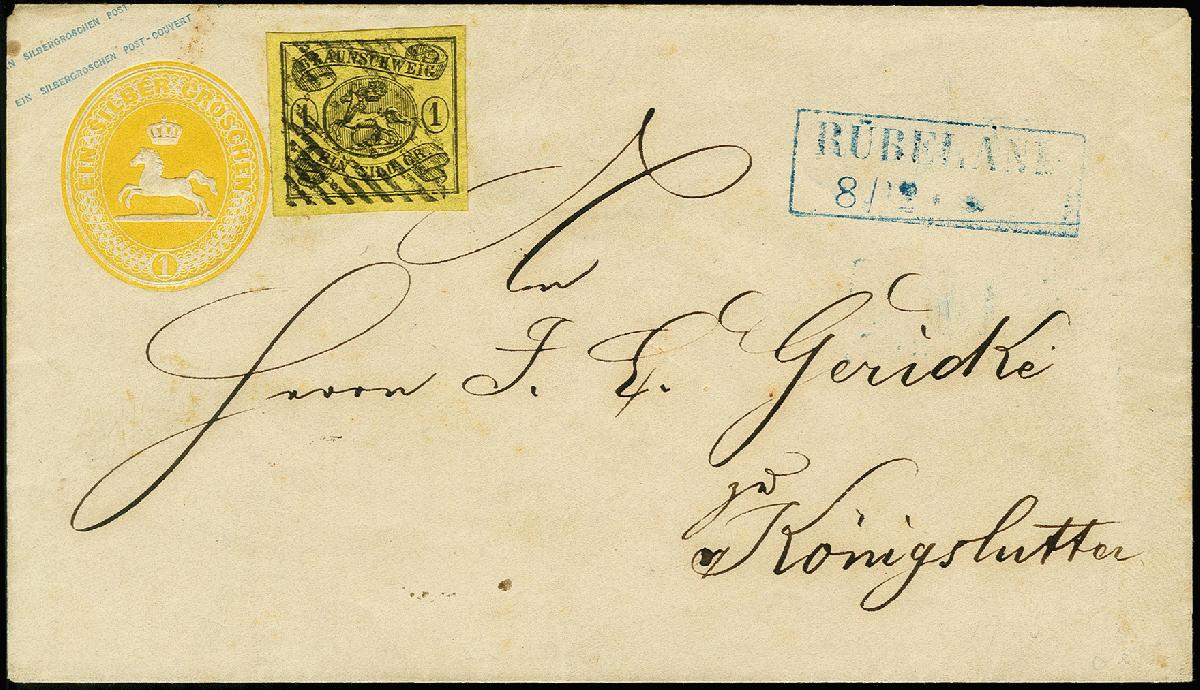 EIN SILBERGROSCHEN POST
EIN SILBERGROSCHEN POST-COUVERT
EIN SILBER-GROSCHEN
1
BRAUNSCHWEIG
1 1
EIN SILBERGR
RÜBELAND
8/12
An
Herrn J. E. Gericke
zu
Königslutter